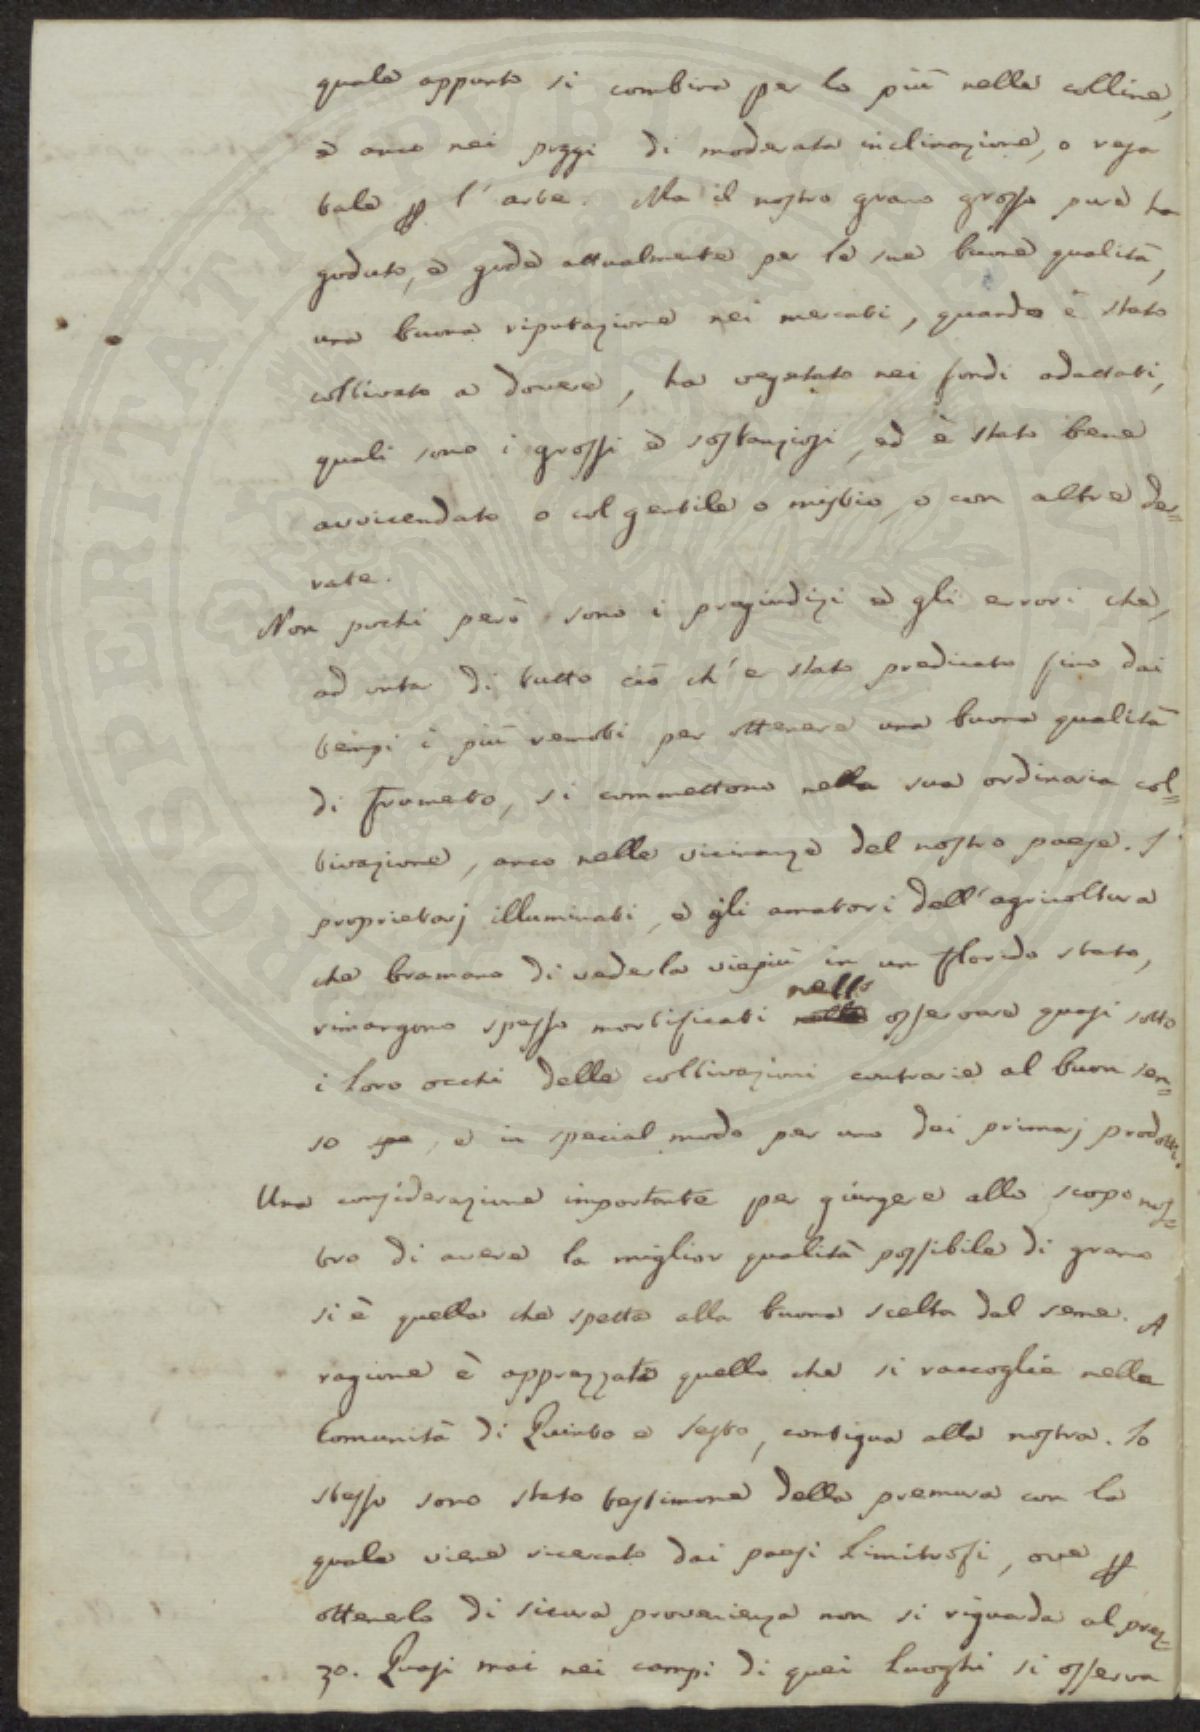 quale appunto si combina per lo più nelle colline,
e anco nei poggi di moderata inclinazione, o resa
tale p l'arte. Ma il nostro grano grosso pure ha
goduto, e gode attualmente per le sue buone qualità,
una buona riputazione nei mercati, quando è stato
coltivato a dovere, ha vegetato nei fondi adattati,
quali sono i grossi e sostanziosi, ed è stato bene
avvicendato o col gentile o mistio, o con altre der=
rate.
Non pochi però sono i pregiudizi e gli errori che,
ad onta di tutto ciò ch'è stato predicato fino dai
tempi i più remoti per ottenere una buona qualità
di Frumento, si commettono nella sua ordinaria col=
tivazione, anco nelle vicinanze del nostro paese. I
proprietarj illuminati, e gli amatori dell'agricoltura
che bramano di vederla viepiù in un florido stato,
rimangono spesso mortificati nello osservare quasi sotto
i loro occhi delle coltivazioni contrarie al buon sen=
so, e in special modo per uno dei primarj prodotti.
Una considerazione importante per giungere allo scopo nos=
tro di avere la miglior qualità possibile di grano
si è quella che spetta alla buona scelta del seme. A
ragione è apprezzato quello che si raccoglie nelle
Comunità di Quinto e Sesto, contigua alla nostra. Io
stesso sono stato testimone della premura con la
quale viene ricercato dai paesi limitrofi, ove p
ottenerlo di sicura provenienza non si riguarda al prez=
zo. Quasi mai nei campi di quei luoghi si osserva